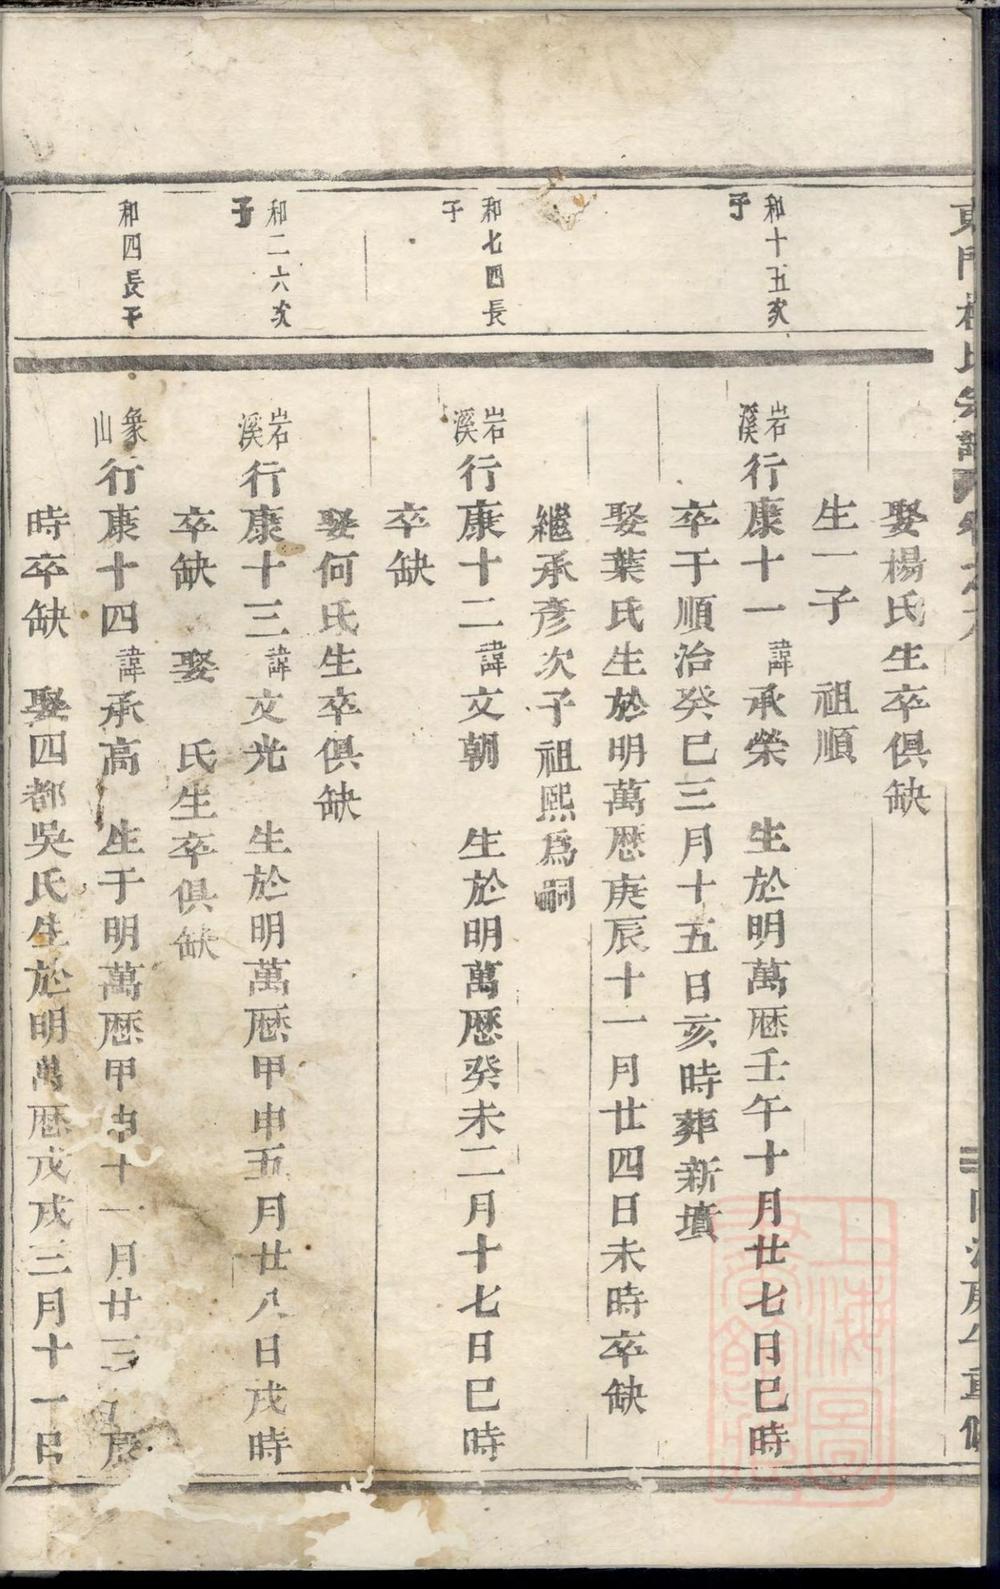 娶楊氏生卒俱缺
生一子 祖順
和十五次子
岩溪行康十一諱承榮 生於明萬厯壬午十月廿七日巳時
卒于順治癸巳三月十五日亥時葬新墳
娶葉氏生於明萬厯庚辰十一月廿四日未時卒缺
繼承彦次子祖熙爲嗣
和七四長子
岩溪行康十二諱文朝 生於明萬厯癸未二月十七日巳時
卒缺
娶何氏生卒俱缺
和二六次子
岩溪行康十三諱文光 生於明萬厯甲申五月廿八日戌時
卒缺 娶 氏生卒俱缺
和四長子
象山行康十四諱承高 生于明萬厯甲申十一月廿三
時卒缺 娶四都吳氏生於明萬厯戊戌三月十一